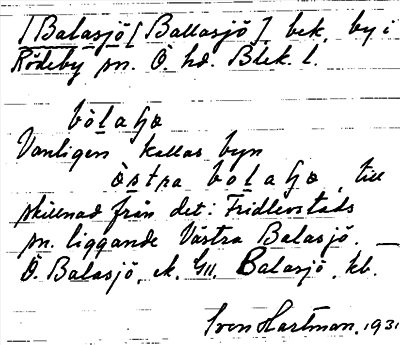 [Balasjö [Ballasjö] bek. by i
Rödeby sn. Ö. hd. Blek. l.
Vanligen kallas byn
till
skillnad från det i Fridlevstads
sn. liggande Västra Balasjö. —
Ö. Balasjö, Balasjö, kb.
Sven Hartman. 1931